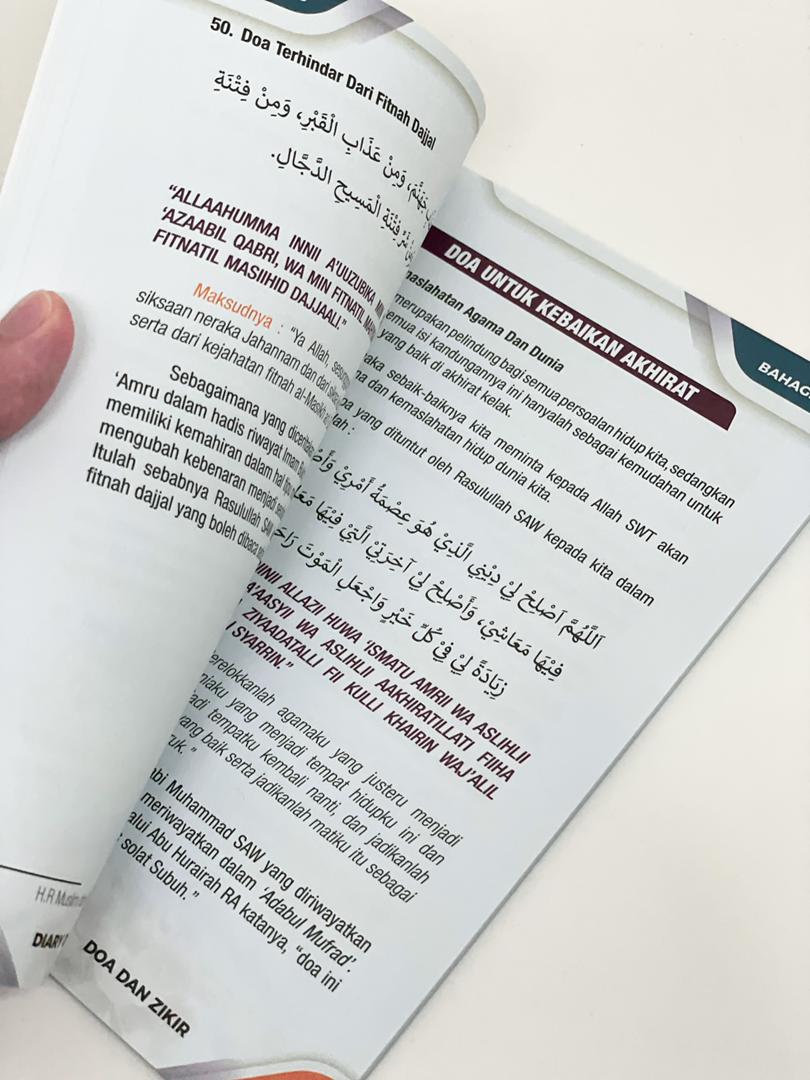 50. Doa Terhindar Dari Fitnah Dajjal
جَهَنَّمَ، وَمِنْ عَذَابِ الْقَبْرِ، وَمِنْ فِتْنَةِ
فِتْنَةِ الْمَسِيحِ الدَّجَّالِ.
"ALLAAHUMMA INNII A'UUZUBIKA MIN
'AZAABIL QABRI, WA MIN FITNATIL
FITNATIL MASIIHID DAJJAALI."
Maksudnya : "Ya Allah,
siksaan neraka Jahannam dan dari
serta dari kejahatan fitnah al-Masikh
Sebagaimana yang
'Amru dalam hadis riwayat Imam
memiliki kemahiran dalam hal
mengubah kebenaran menjadi
Itulah sebabnya Rasulullah SAW
fitnah dajjal yang boleh dibaca
H.R Muslim
DIARY
DOA UNTUK KEBAIKAN AKHIRAT
BAHAG
Agama Dan Dunia
merupakan pelindung bagi semua persoalan hidup kita, sedangkan
isi kandungannya ini hanyalah sebagai kemudahan untuk
yang baik di akhirat kelak.
sebaik-baiknya kita meminta kepada Allah SWT akan
dan kemaslahatan hidup dunia kita.
yang dituntut oleh Rasulullah SAW kepada kita dalam
:
اَللّٰهُمَّ اَصْلِحْ لِيْ دِيْنِي الَّذِيْ هُوَ عِصْمَةُ أَمْرِيْ
فِيْهَا مَعَاشِيْ، وَأَصْلِحْ لِيْ آخِرَتِيْ الَّتِيْ فِيْهَا
زِيَادَةً لِيْ فِيْ كُلِّ خَيْرٍ وَاجْعَلِ الْمَوْتَ
ALLAZII HUWA 'ISMATU AMRII WA ASLIHLII
WA ASLIHLII AAKHIRATILLATI FIIHA
ZIYAADATALLI FII KULLI KHAIRIN WAJ'ALIL
SYARRIN."
agamaku yang justeru menjadi
yang menjadi tempat hidupku ini dan
tempatku kembali nanti, dan jadikanlah
baik serta jadikanlah matiku itu sebagai
Muhammad SAW yang diriwayatkan
meriwayatkan dalam 'Adabul Mufrad'.
Abu Hurairah RA katanya, "doa ini
solat Subuh."
DOA DAN ZIKIR